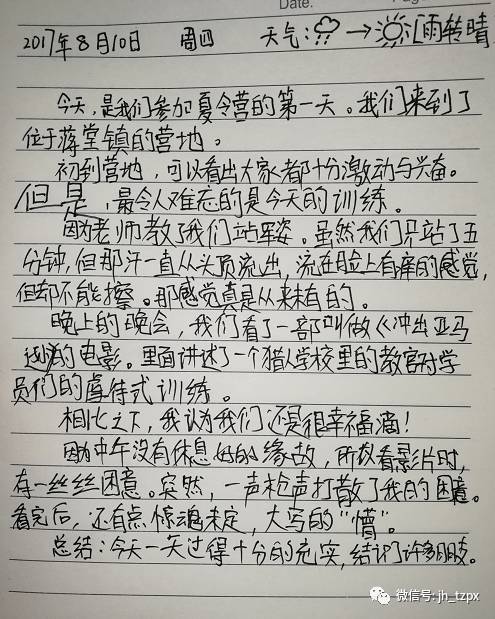 Date.
2017年8月10日 周四 天气:→[雨转晴
今天,是我们参加夏令营的第一天。我们来到了
位于蒋堂镇的营地。
初到营地,可以看出大家都十分激动与兴奋。
但是,最令人难忘的是今天的训练。
因为老师教了我们站军姿。虽然我们只站了五
分钟,但那汗一直从头顶流出,流在脸上有痒的感觉,
但却不能擦。那感觉真是从来未有的。
晚上的晚会,我们看了一部叫做《冲出亚马
逊》的电影。里面讲述了一个猎人学校里的教官对学
员们的虐待式训练。
相比之下,我认为我们还是很幸福滴!
因为中午没有休息好的缘故,所以看影片时,
有一丝丝困意。突然,一声枪声打散了我的困意。
看完后,还有点惊魂未定,大写的“懵”。
总结:今天一天过得十分的充实,结识了许多朋友。
微信号:jh_tzpx